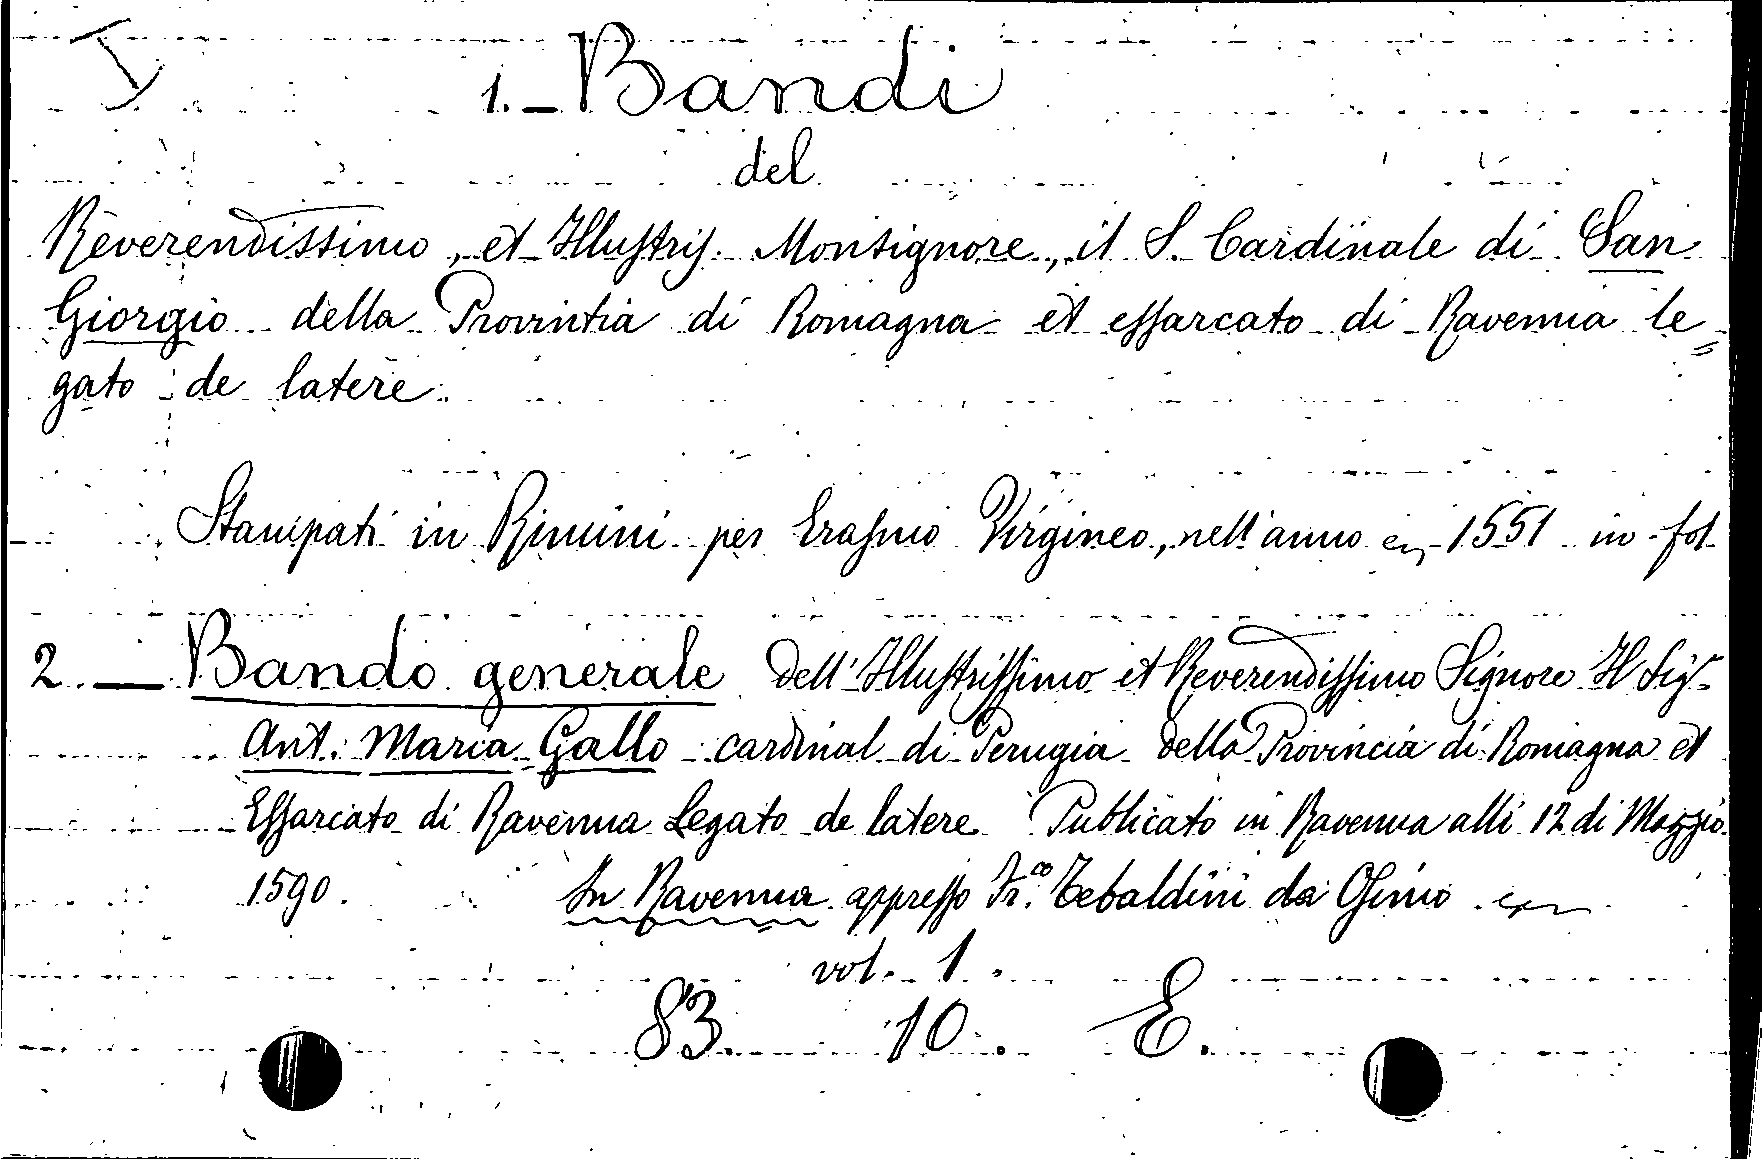 1. - Bandi
del
Reverendissimo, et Illustris. Monsignore, il S. Cardinale di San
Giorgio della Provintia di Romagna et essarcato di Ravenna le=
gato de latere.
Stampati in Rimini per Erasmo Virgineo, nell'anno 1551 in-fol
2. — Bando generale dell'Illustrissimo et Reverendissimo Signore Il Sigr
Ant. Maria Gallo cardinal di Perugia della Provincia di Romagna et
Essarcato di Ravenna Legato de latere Publicato in Ravenna alli 12 di Maggio
1590. In Ravenna appresso Fr.co Tebaldini da Osimo
vol. 1.
83. 10. E.